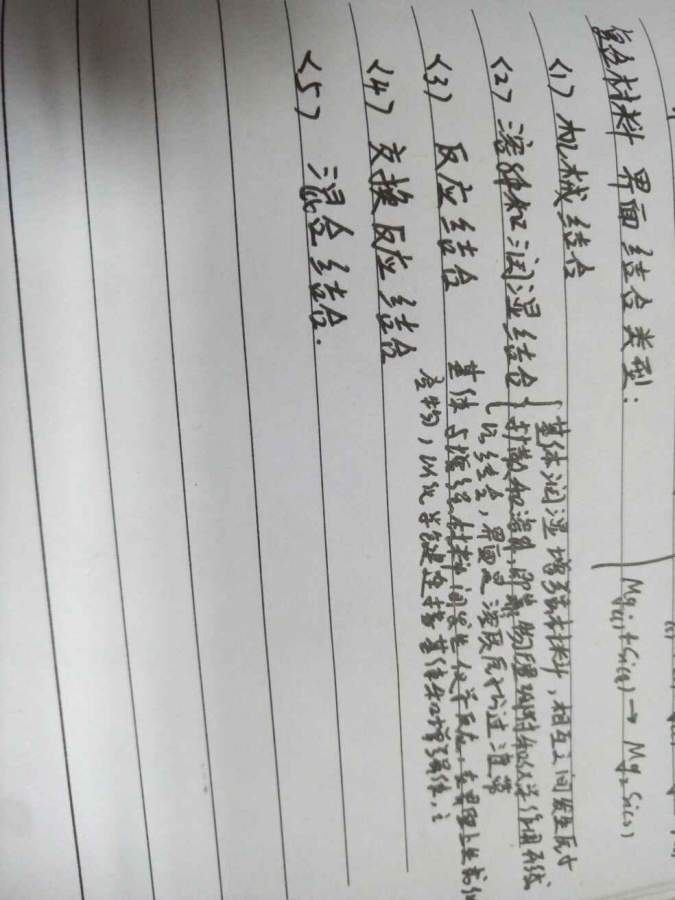 Mg(l)+Si(l)→Mg2Si(s)
复合材料 界面结合类型:
(1) 机械结合
(2) 溶解和润湿结合
基体润湿增强材料,相互之间发生原子
扩散和溶解,即物理吸附和化学作用
结合,界面是溶质原子过渡带
(3) 反应结合
基体与增强材料间发生化学反应,在界面上生成化
合物,以化学键连接基体和增强体
(4) 交换反应结合
(5) 混合结合.